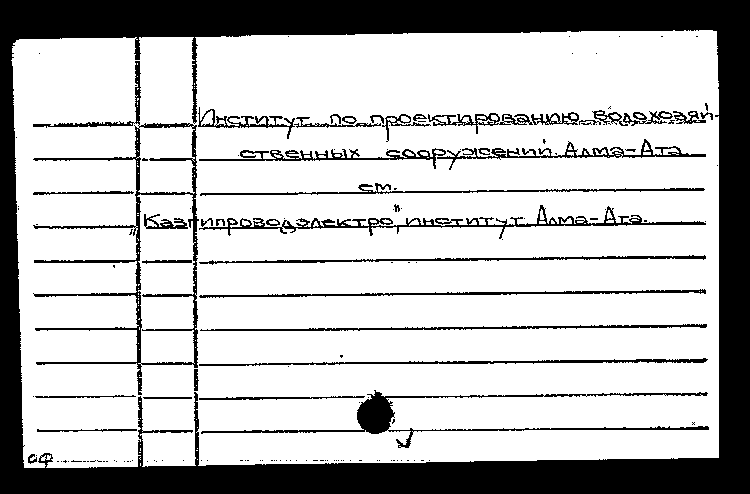 Институт по проектированию водохозяй-
ственных сооружений. Алма-Ата
см.
„Казгипроводэлектро", институт. Алма-Ата.
оф